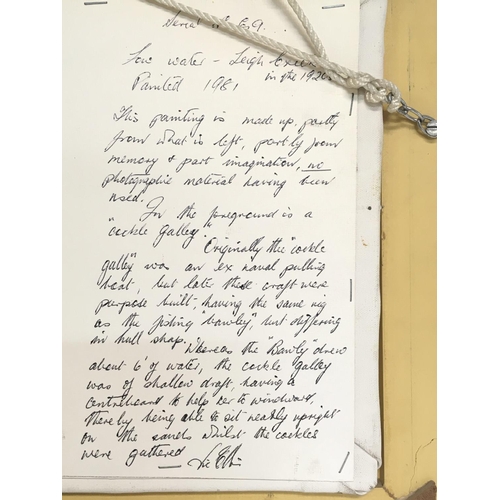 Serial No 69.
Low water - Leigh
in the 1920s
Painted 1981
This painting is made up partly
from what is left, partly from
memory & part imagination, no
photographic material having been
used.
In the foreground is a
"cockle galley." Originally the "cockle
galley" was an ex naval pulling
boat, but later these craft were
purpose built, having the same rig
as the fishing "bawley", but differing
in hull shape. Whereas the "Bawly" drew
about 6' of water, the cockle galley
was of shallow draft, having a
centreboard to help her to windward,
thereby being able to sit neatly upright
on the sands whilst the cockles
were gathered